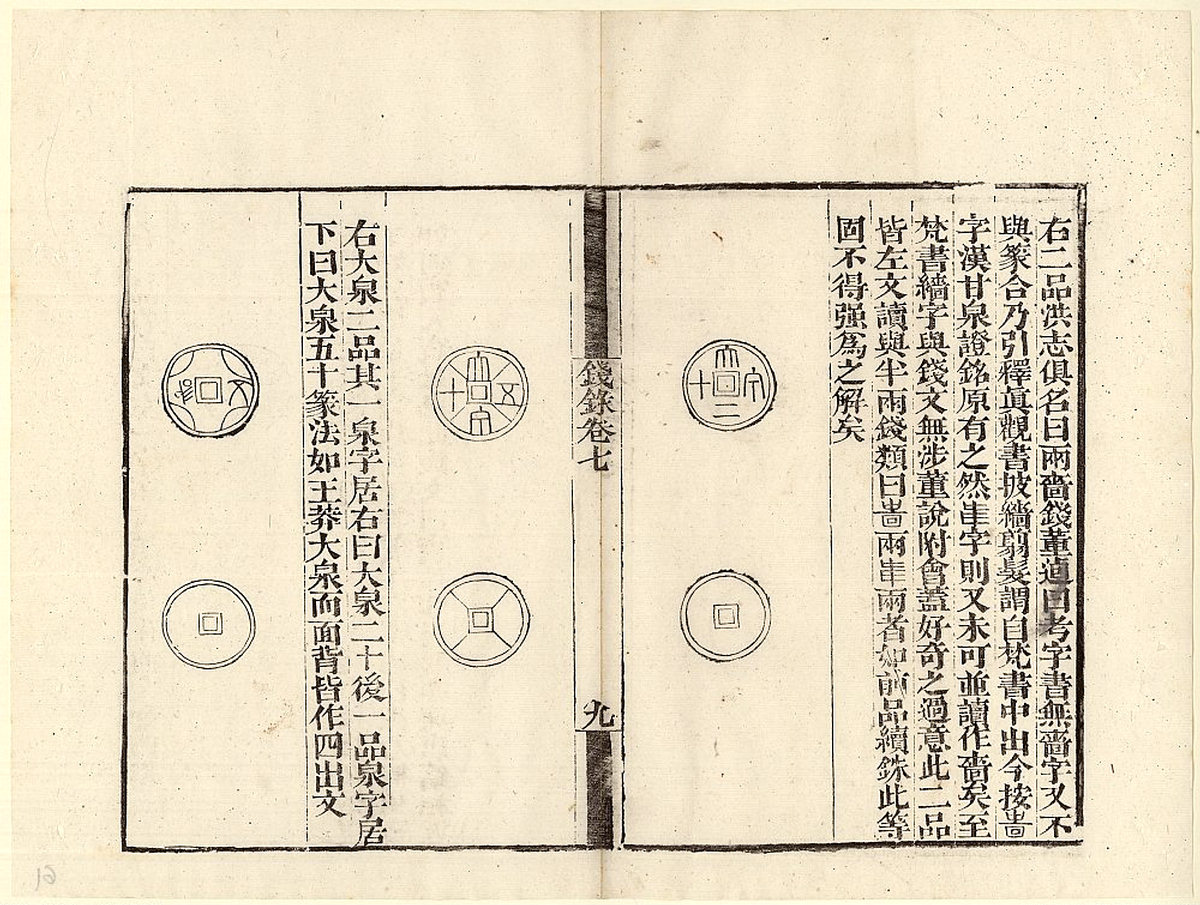 右二品洪志俱名曰兩嗇錢董逌曰考字書無嗇字又不
與篆合乃引釋眞觀書披繬剪髮謂自梵書中出今按啚
字漢甘泉證銘原有之然𠀐字則又未可並讀作嗇矣至
梵書繬字與錢文無涉董說附會蓋好奇之過意此二品
皆左文讀與半兩錢類曰啚兩𠀐兩者如前品續銖此等
固不得强為之解矣
大
十
二
錢錄卷七
九
大
五
十
右大泉二品其一泉字居右曰大泉二十後一品泉字居
下曰大泉五十篆法如王莽大泉而面背皆作四出文